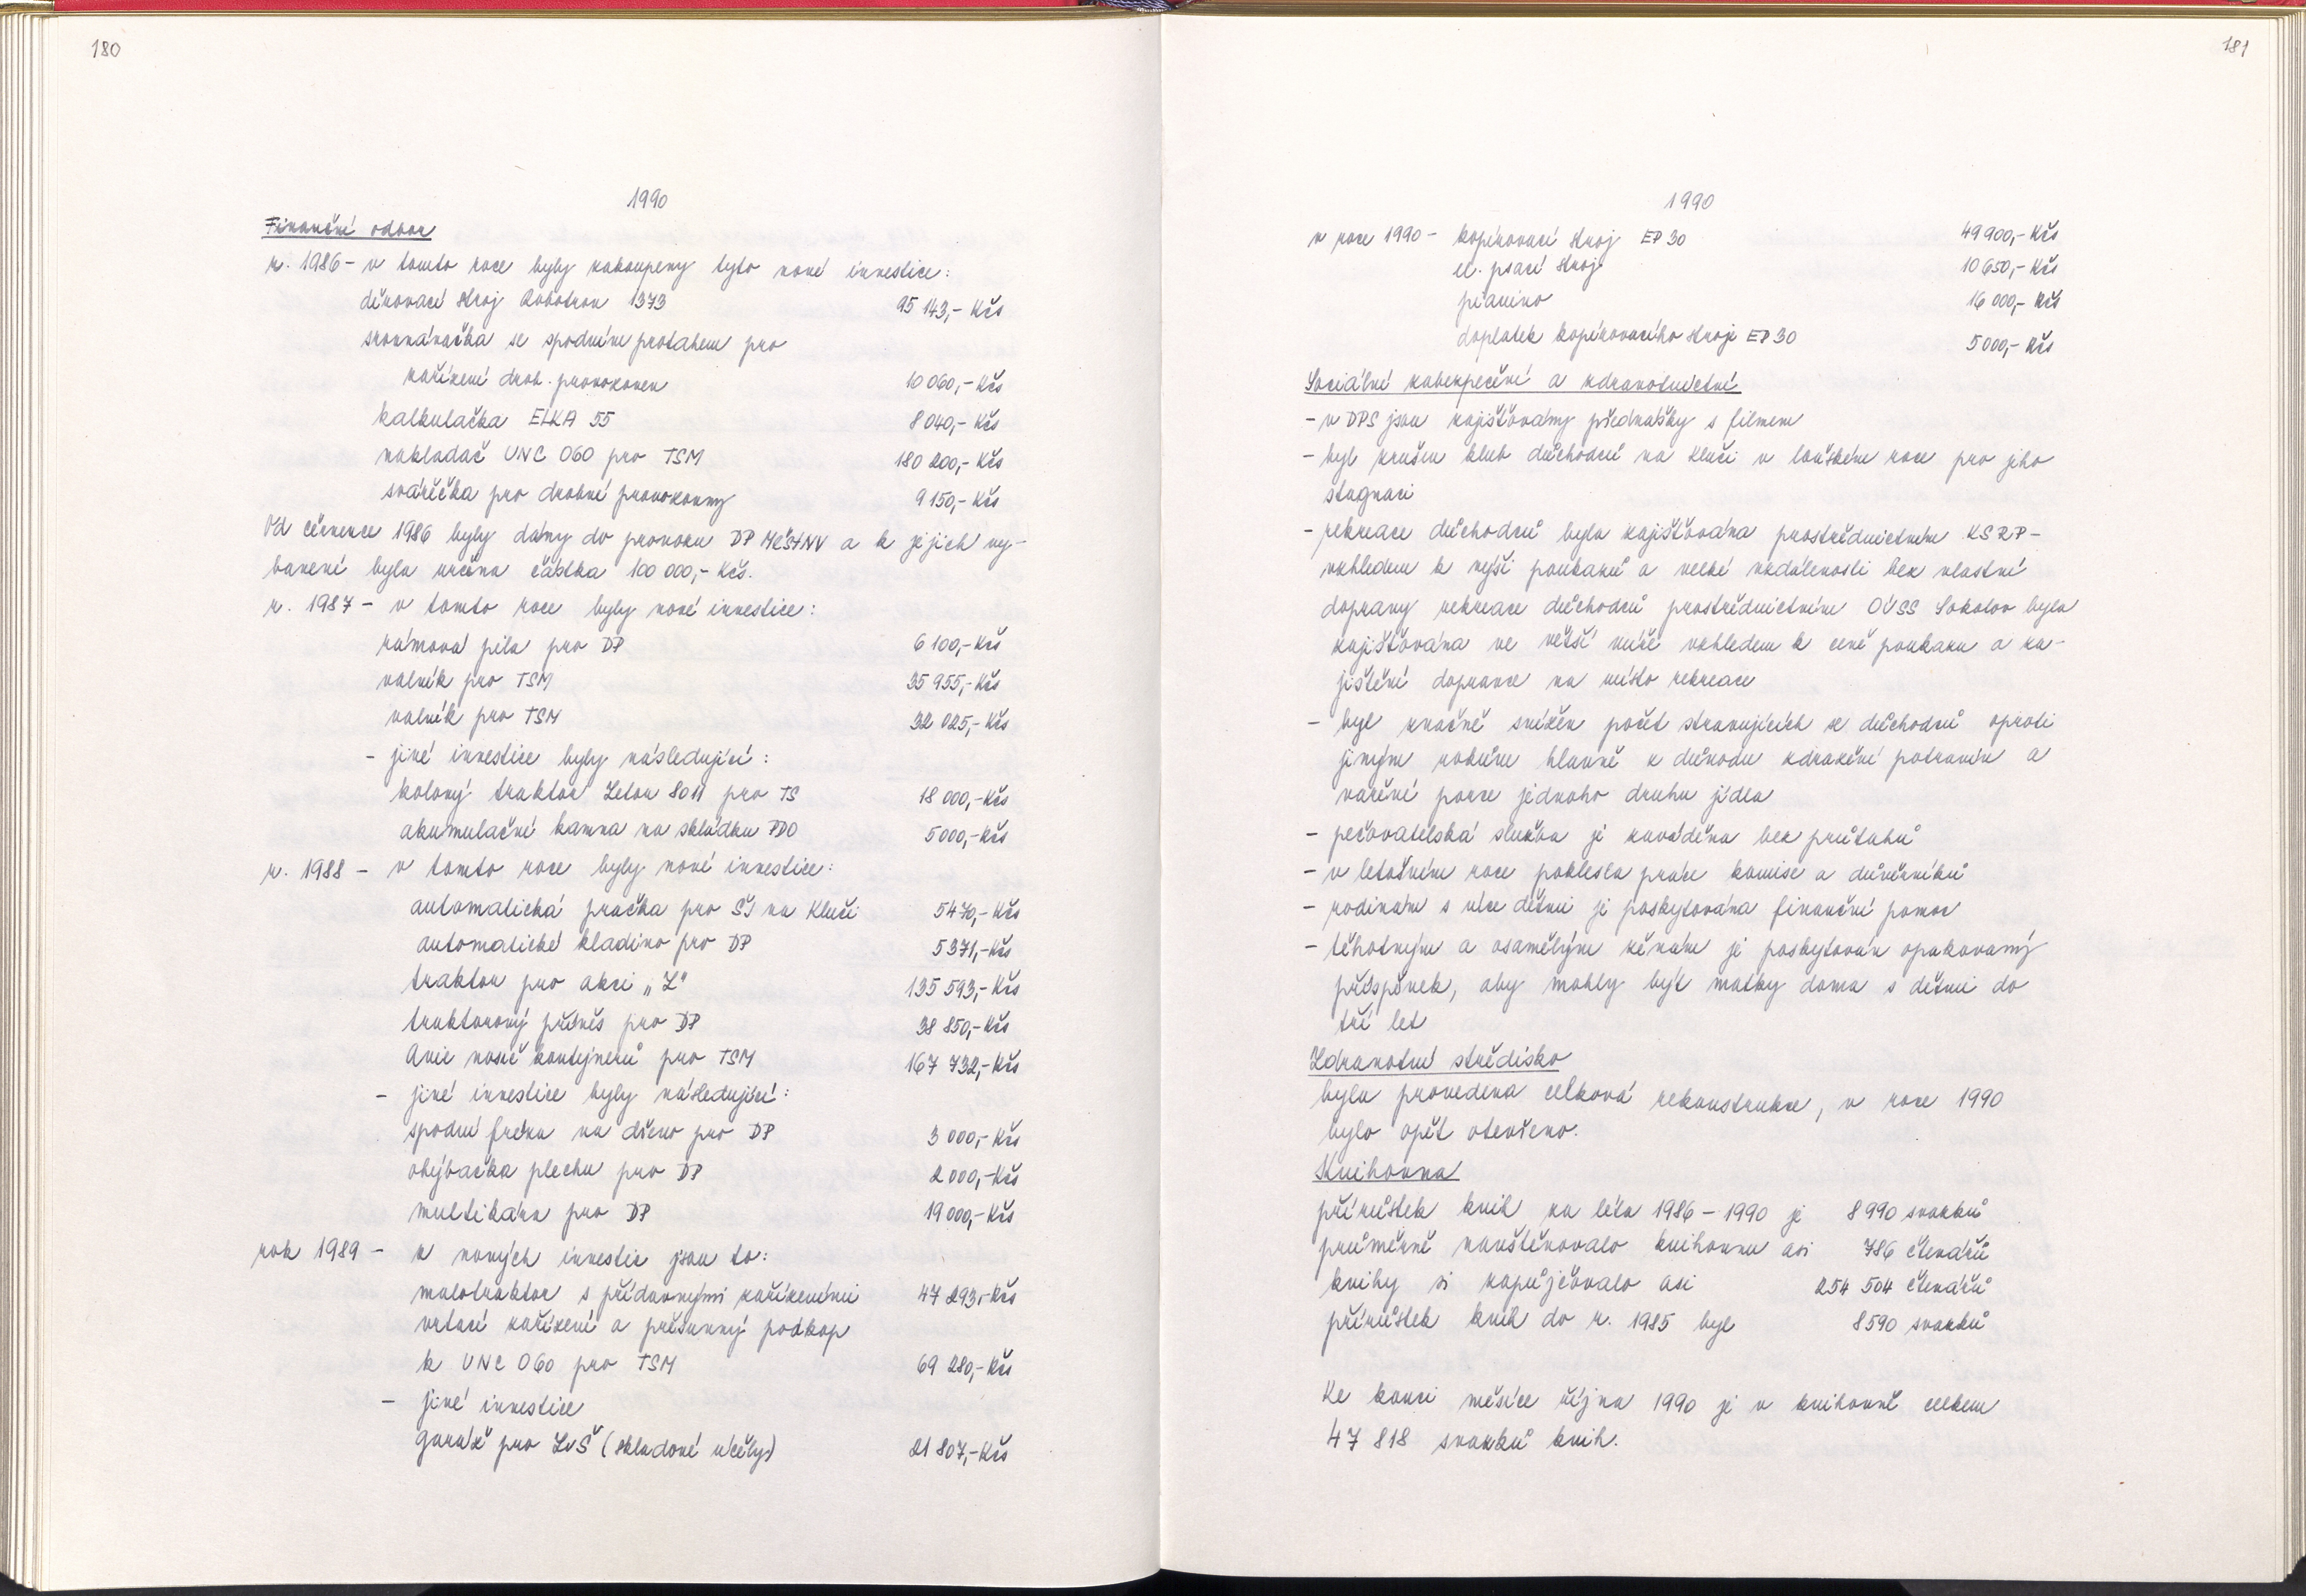 180
1990
Finanční odbor
r. 1986 - v tomto roce byly zakoupeny tyto nové investice:
děrovací stroj Robotron 1373 95 143,- Kčs
srovnávačka se spodním protahem pro
zařízení drob. provozoven 10 060,- Kčs
kalkulačka ELKA 55 8 040,- Kčs
nakladač UNC 060 pro TSM 180 200,- Kčs
svářečka pro drobné provozovny 9 150,- Kčs
Od července 1986 byly dány do provozu DP MěstNV a k jejich vy-
bavení byla určena částka 100 000,- Kčs.
r. 1987 - v tomto roce byly nové investice:
rámová pila pro DP 6 100,- Kčs
valník pro TSM 35 955,- Kčs
valník pro TSM 32 025,- Kčs
- jiné investice byly následující:
kolový traktor Zetor 8011 pro TS 18 000,- Kčs
akumulační kamna na skládku PDO 5 000,- Kčs
r. 1988 - v tomto roce byly nové investice:
automatická pračka pro ŠJ na Kluči 5 470,- Kčs
automatické kladivo pro DP 5 371,- Kčs
traktor pro akci „Z" 135 593,- Kčs
traktorový přívěs pro DP 38 850,- Kčs
Avie nosič kontejnerů pro TSM 167 732,- Kčs
- jiné investice byly následující:
spodní fréza na dřevo pro DP 3 000,- Kčs
ohýbačka plechu pro DP 2 000,- Kčs
multikára pro DP 19 000,- Kčs
rok 1989 - z nových investic jsou to:
malotraktor s přídavnými zařízeními 47 293,- Kčs
vrtací zařízení a přesuvný podkop
k UNC 060 pro TSM 69 280,- Kčs
- jiné investice
garáž pro LvŠ (skladové účely) 21 807,- Kčs
181
1990
v roce 1990 - kopírovací stroj EP 30 49 900,- Kčs
el. psací stroj 10 650,- Kčs
pianino 16 000,- Kčs
doplatek kopírovacího stroje EP 30 5 000,- Kčs
Sociální zabezpečení a zdravotnictví
- v DPS jsou zajišťovány přednášky s filmem
- byl zrušen klub důchodců na Kluči v loňském roce pro jeho
stagnaci
- rekreace důchodců byla zajišťována prostřednictvím KSRP -
vzhledem k výši poukazů a velké vzdálenosti bez vlastní
dopravy rekreace důchodců prostřednictvím OÚSS Sokolov byla
zajišťována ve větší míře vzhledem k ceně poukazu a za-
jištění dopravce na místo rekreace
- byl značně snížen počet stravujících se důchodců oproti
jiným rokům hlavně z důvodu zdražení potravin a
vaření pouze jednoho druhu jídla
- pečovatelská služba je zaváděna bez průtahů
- v letošním roce poklesla práce komise a důvěrníků
- rodinám s více dětmi je poskytována finanční pomoc
- těhotným a osamělým ženám je poskytován opakovaný
příspěvek, aby mohly být matky doma s dětmi do
tří let
Zdravotní středisko
byla provedena celková rekonstrukce, v roce 1990
bylo opět otevřeno.
Knihovna
přírůstek knih za léta 1986 - 1990 je 8 990 svazků
průměrně navštěvovalo knihovnu asi 786 čtenářů
knihy si zapůjčovalo asi 254 504 čtenářů
přírůstek knih do r. 1985 byl 8 590 svazků
Ke konci měsíce října 1990 je v knihovně celkem
47 818 svazků knih.